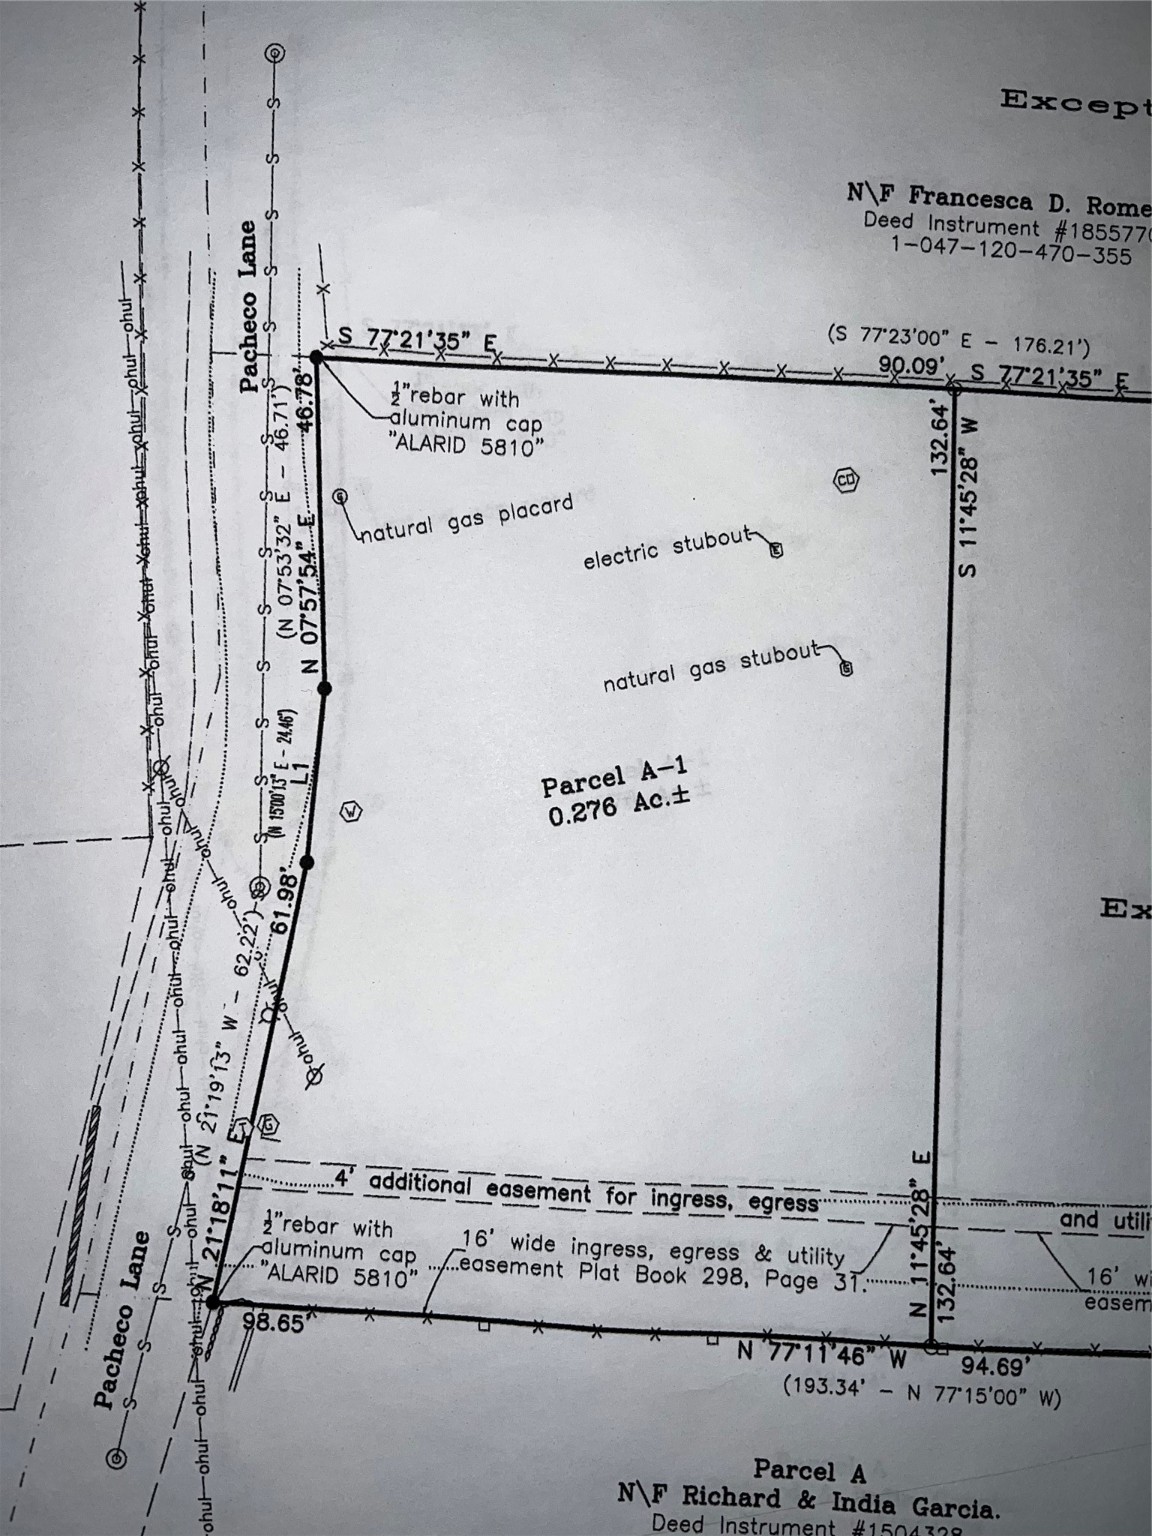 Except
N\F Francesca D. Rome
Deed Instrument #1855770
1-047-120-470-355
Pacheco Lane
S 77°21'35" E
(S 77°23'00" E - 176.21')
90.09'
S 77°21'35" E
46.78'
N 07°57'54" E
(N 07°53'32" E - 46.71')
½"rebar with
aluminum cap
"ALARID 5810"
132.64'
S 11°45'28" W
CO
G
natural gas placard
electric stubout
E
natural gas stubout
G
Parcel A-1
0.276 Ac.±
L1
(N 15°00'13" E - 24.46')
W
61.98'
N 21°18'11" E
(N 21°19'13" W - 62.22')
Ex
4' additional easement for ingress, egress
and utili
½"rebar with
aluminum cap
"ALARID 5810"
16' wide ingress, egress & utility
easement Plat Book 298, Page 31.
N 11°45'28" E
132.64'
16' wi
easem
Pacheco Lane
98.65'
N 77°11'46" W
94.69'
(193.34' - N 77°15'00" W)
Parcel A
N\F Richard & India Garcia.
Deed Instrument #1504328